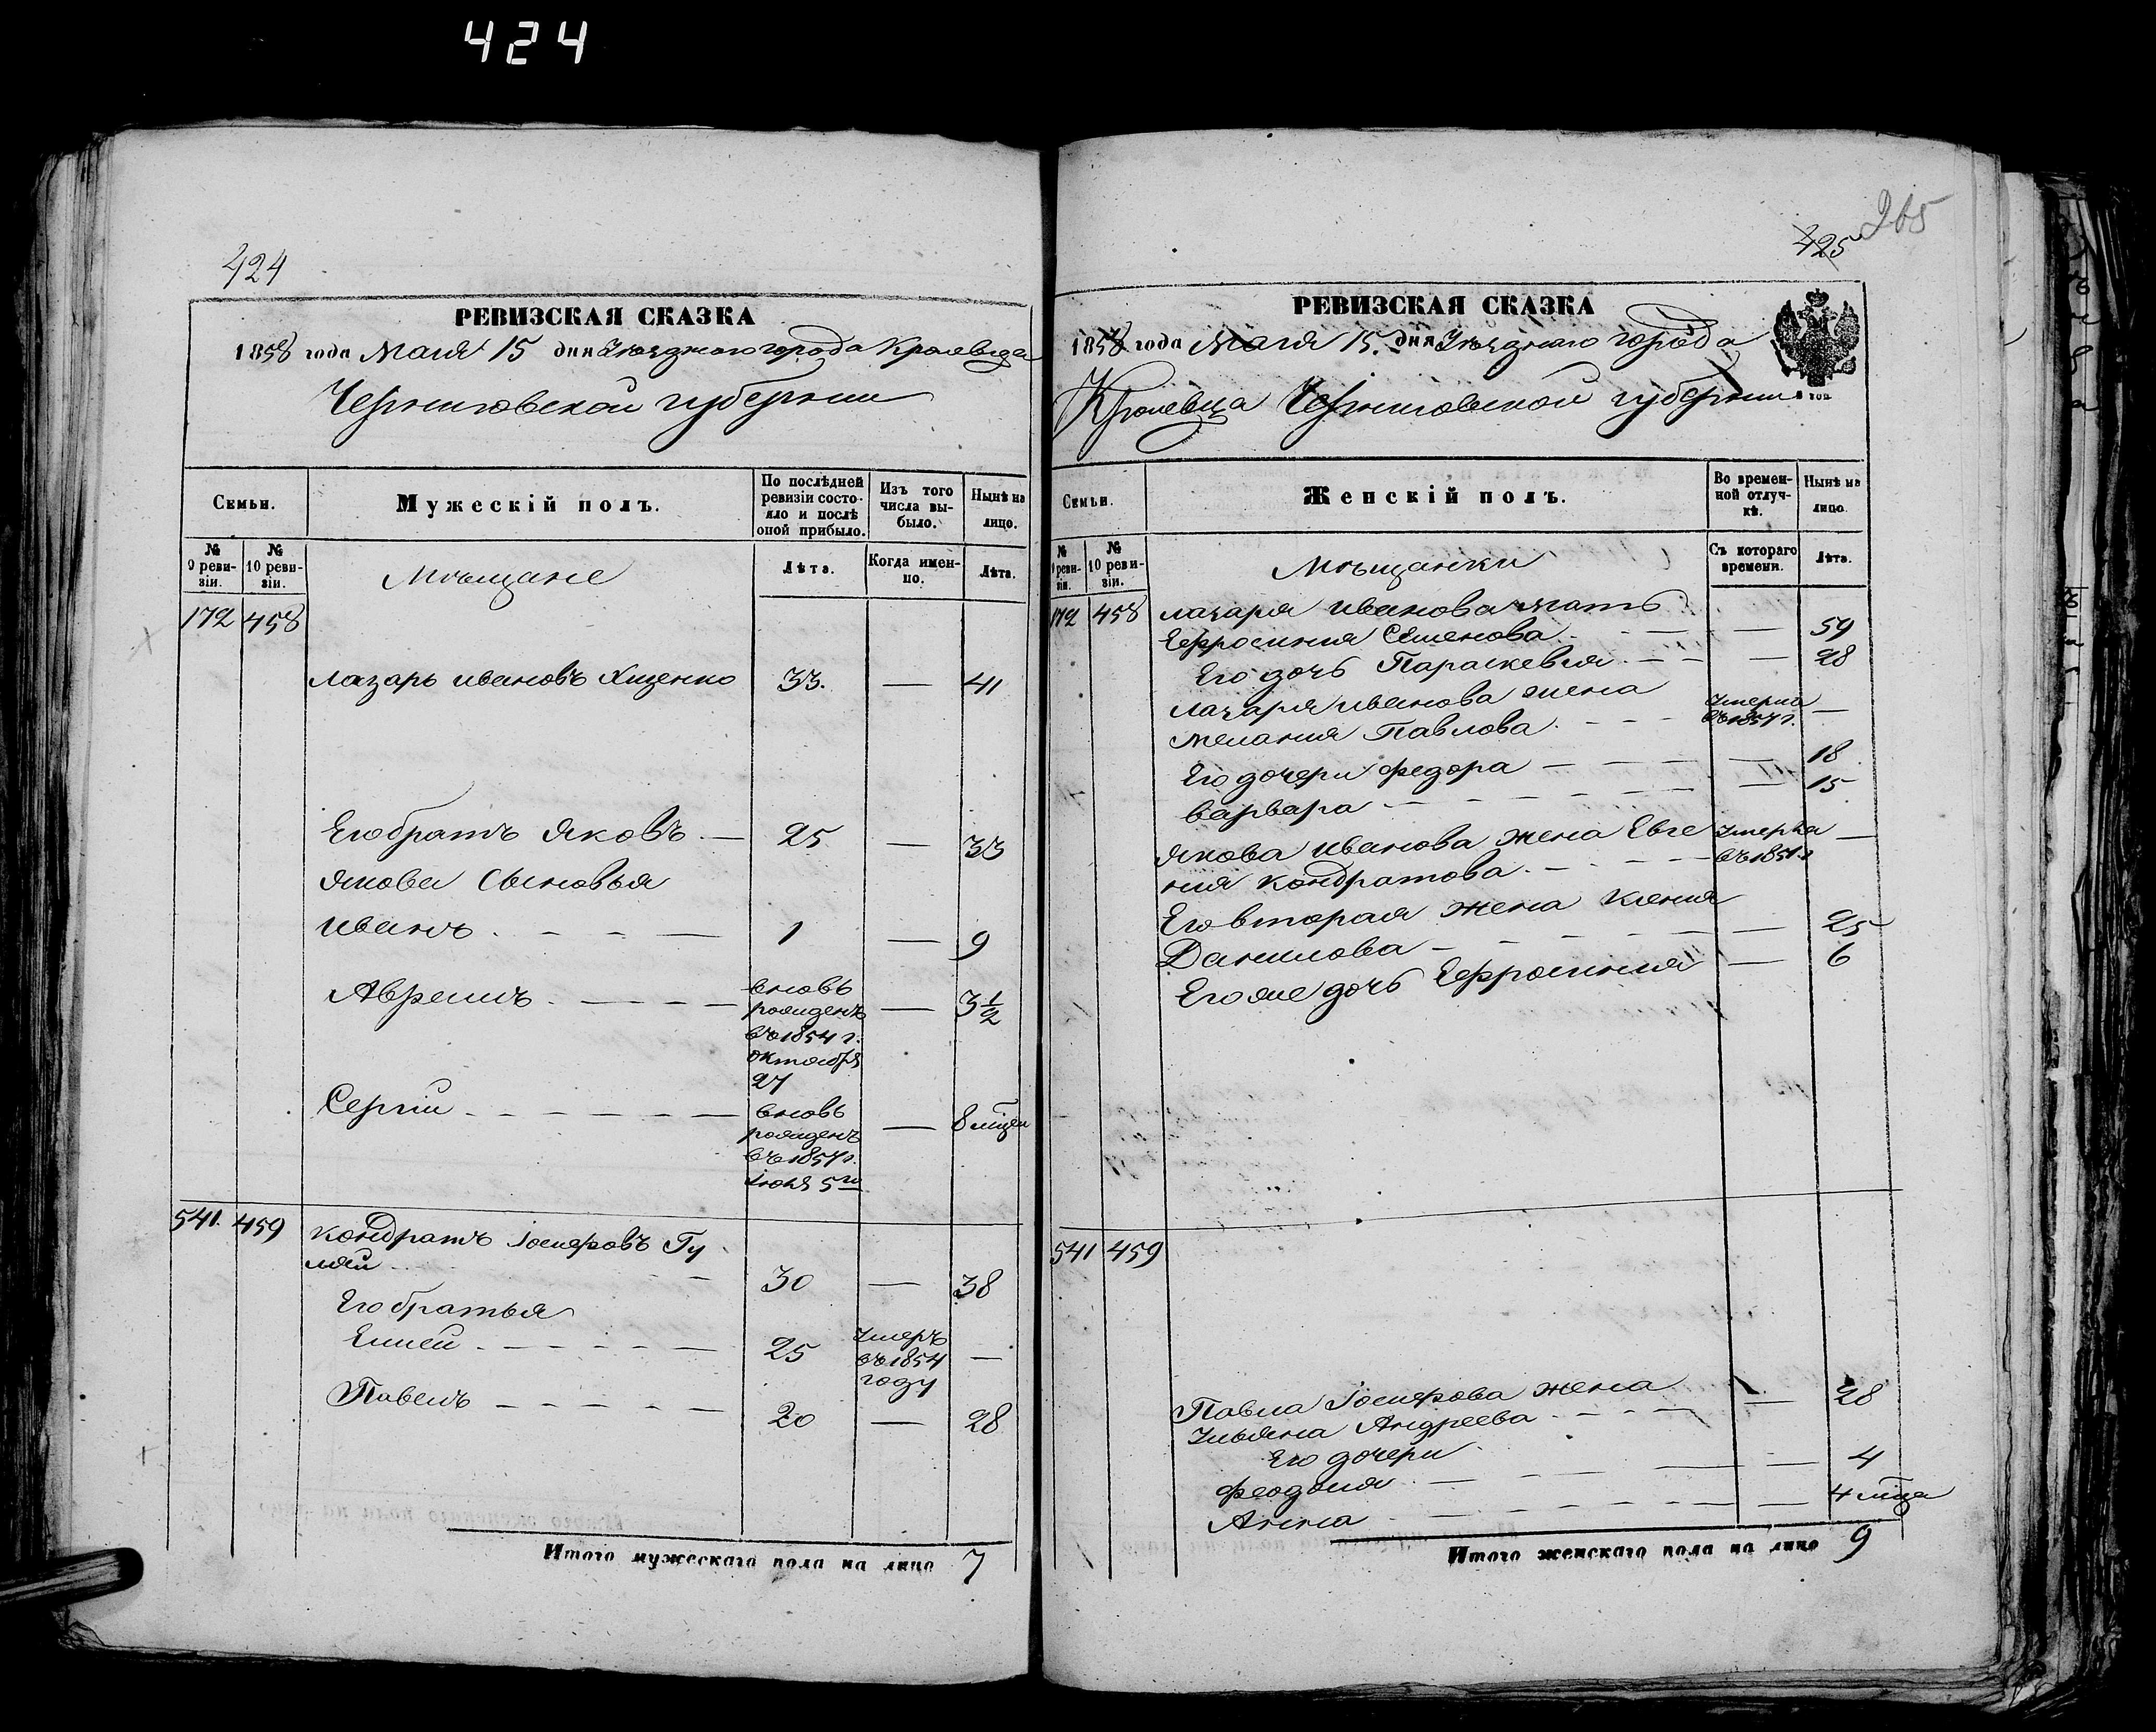 424
424
РЕВИЗСКАЯ СКАЗКА
1858 года Маія 15 дня Уѣзднаго города Кролевца
Черниговской губерніи
Семьи.
Мужескій полъ.
По послѣдней ревизіи состояло и послѣ оной прибыло.
Изъ того числа выбыло.
Нынѣ на лицо.
№ 9 ревизіи.
№ 10 ревизіи.
Мѣщане
Лѣта.
Когда именно.
Лѣта.
172 458
Лазарь Ивановъ Ященко 33. — 41
Его братъ Яковъ — 25 — 33
Якова Сыновья
Иванъ 1 — 9
Аврамъ вновь рожденъ въ 1854 г. октября 27 — 3 1/2
Сергій вновь рожденъ въ 1857 г. 5го — 8 мцей
541. 459 Кондратъ Іосифовъ Гу
ляй 30 — 38
Его братья
Елисей 25 Умеръ въ 1854 году —
Павелъ 20 — 28
Итого мужескаго пола на лицо 7
425 265
РЕВИЗСКАЯ СКАЗКА
1858 года Маія 15. дня Уѣзднаго города
Кролевца Черниговской губерніи
Семьи.
Женскій полъ.
Во временной отлучкѣ.
Нынѣ на лицо.
№ 9 ревизіи.
№ 10 ревизіи.
Мѣщанки
Съ котораго времени.
Лѣта.
172 458 Лазаря Иванова мать
Ефросинія Семенова — 59
Его дочь Параскевія — 28
Лазаря Иванова жена
Меланія Павлова Умерла въ 1857 г. —
Его дочери Федора — 18
Варвара — 15
Якова Иванова жена Евге
нія Кондратова Умерла въ 1851 г —
Его вторая жена Ксенія
Данилова — 25
Его же дочь Ефросинія — 6
541 459
Павла Іосифова жена
Ульяна Андреева — 28
Его дочери
Феодосія — 4
Анна — 4 мца
Итого женскаго пола на лицо 9